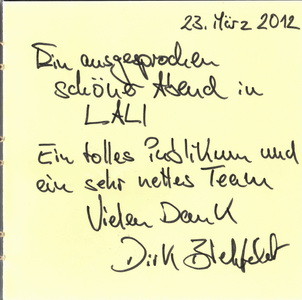 23. März 2012
Ein ausgesprochen
schöner Abend in
LALI
Ein tolles Publikum und
ein sehr nettes Team
Vielen Dank
Dirk